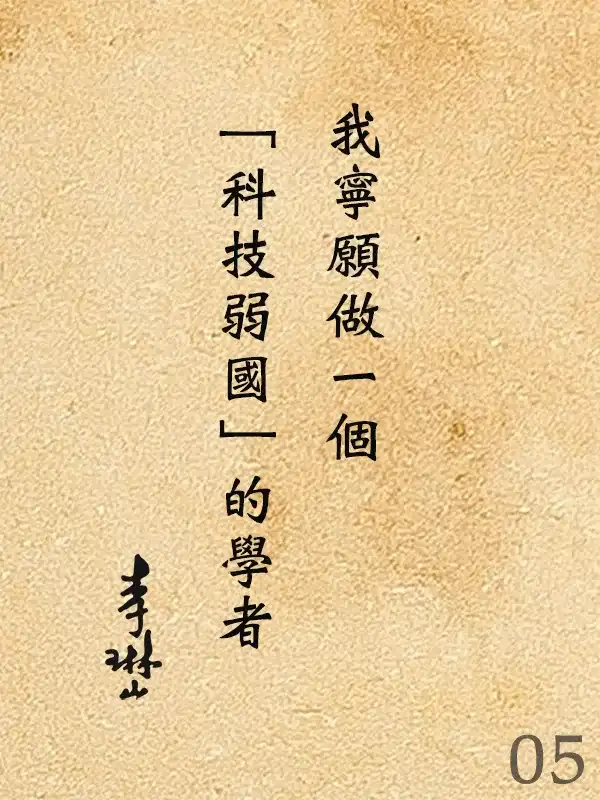 我寧願做一個
「科技弱國」的學者
李琳山
05